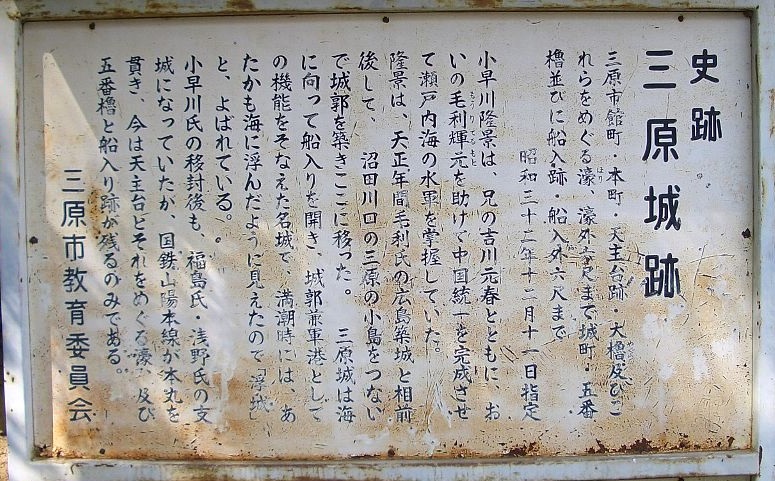 史跡
三原城跡
三原市館町・本町・天主台跡・大櫓及びこ
れらをめぐる濠・濠外六尺まで城町・五番
櫓並びに船入跡・船入外六尺まで
昭和三十二年十二月十一日指定
小早川隆景は、兄の吉川元春とともに、お
いの毛利輝元を助けて中国統一を完成させ
て瀬戸内海の水軍を掌握していた。
隆景は、天正年間毛利氏の広島築城と相前
後して、沼田川口の三原の小島をつない
で城郭を築きここに移った。三原城は海
に向って船入りを開き、城郭兼軍港として
の機能をそなえた名城で、満潮時には、あ
たかも海に浮んだように見えたので「浮城
と、よばれている。
小早川氏の移封後も、福島氏・浅野氏の支
城になっていたが、国鉄山陽本線が本丸を
貫き、今は天主台とそれをめぐる濠・及び
五番櫓と船入り跡が残るのみである。
三原市教育委員会